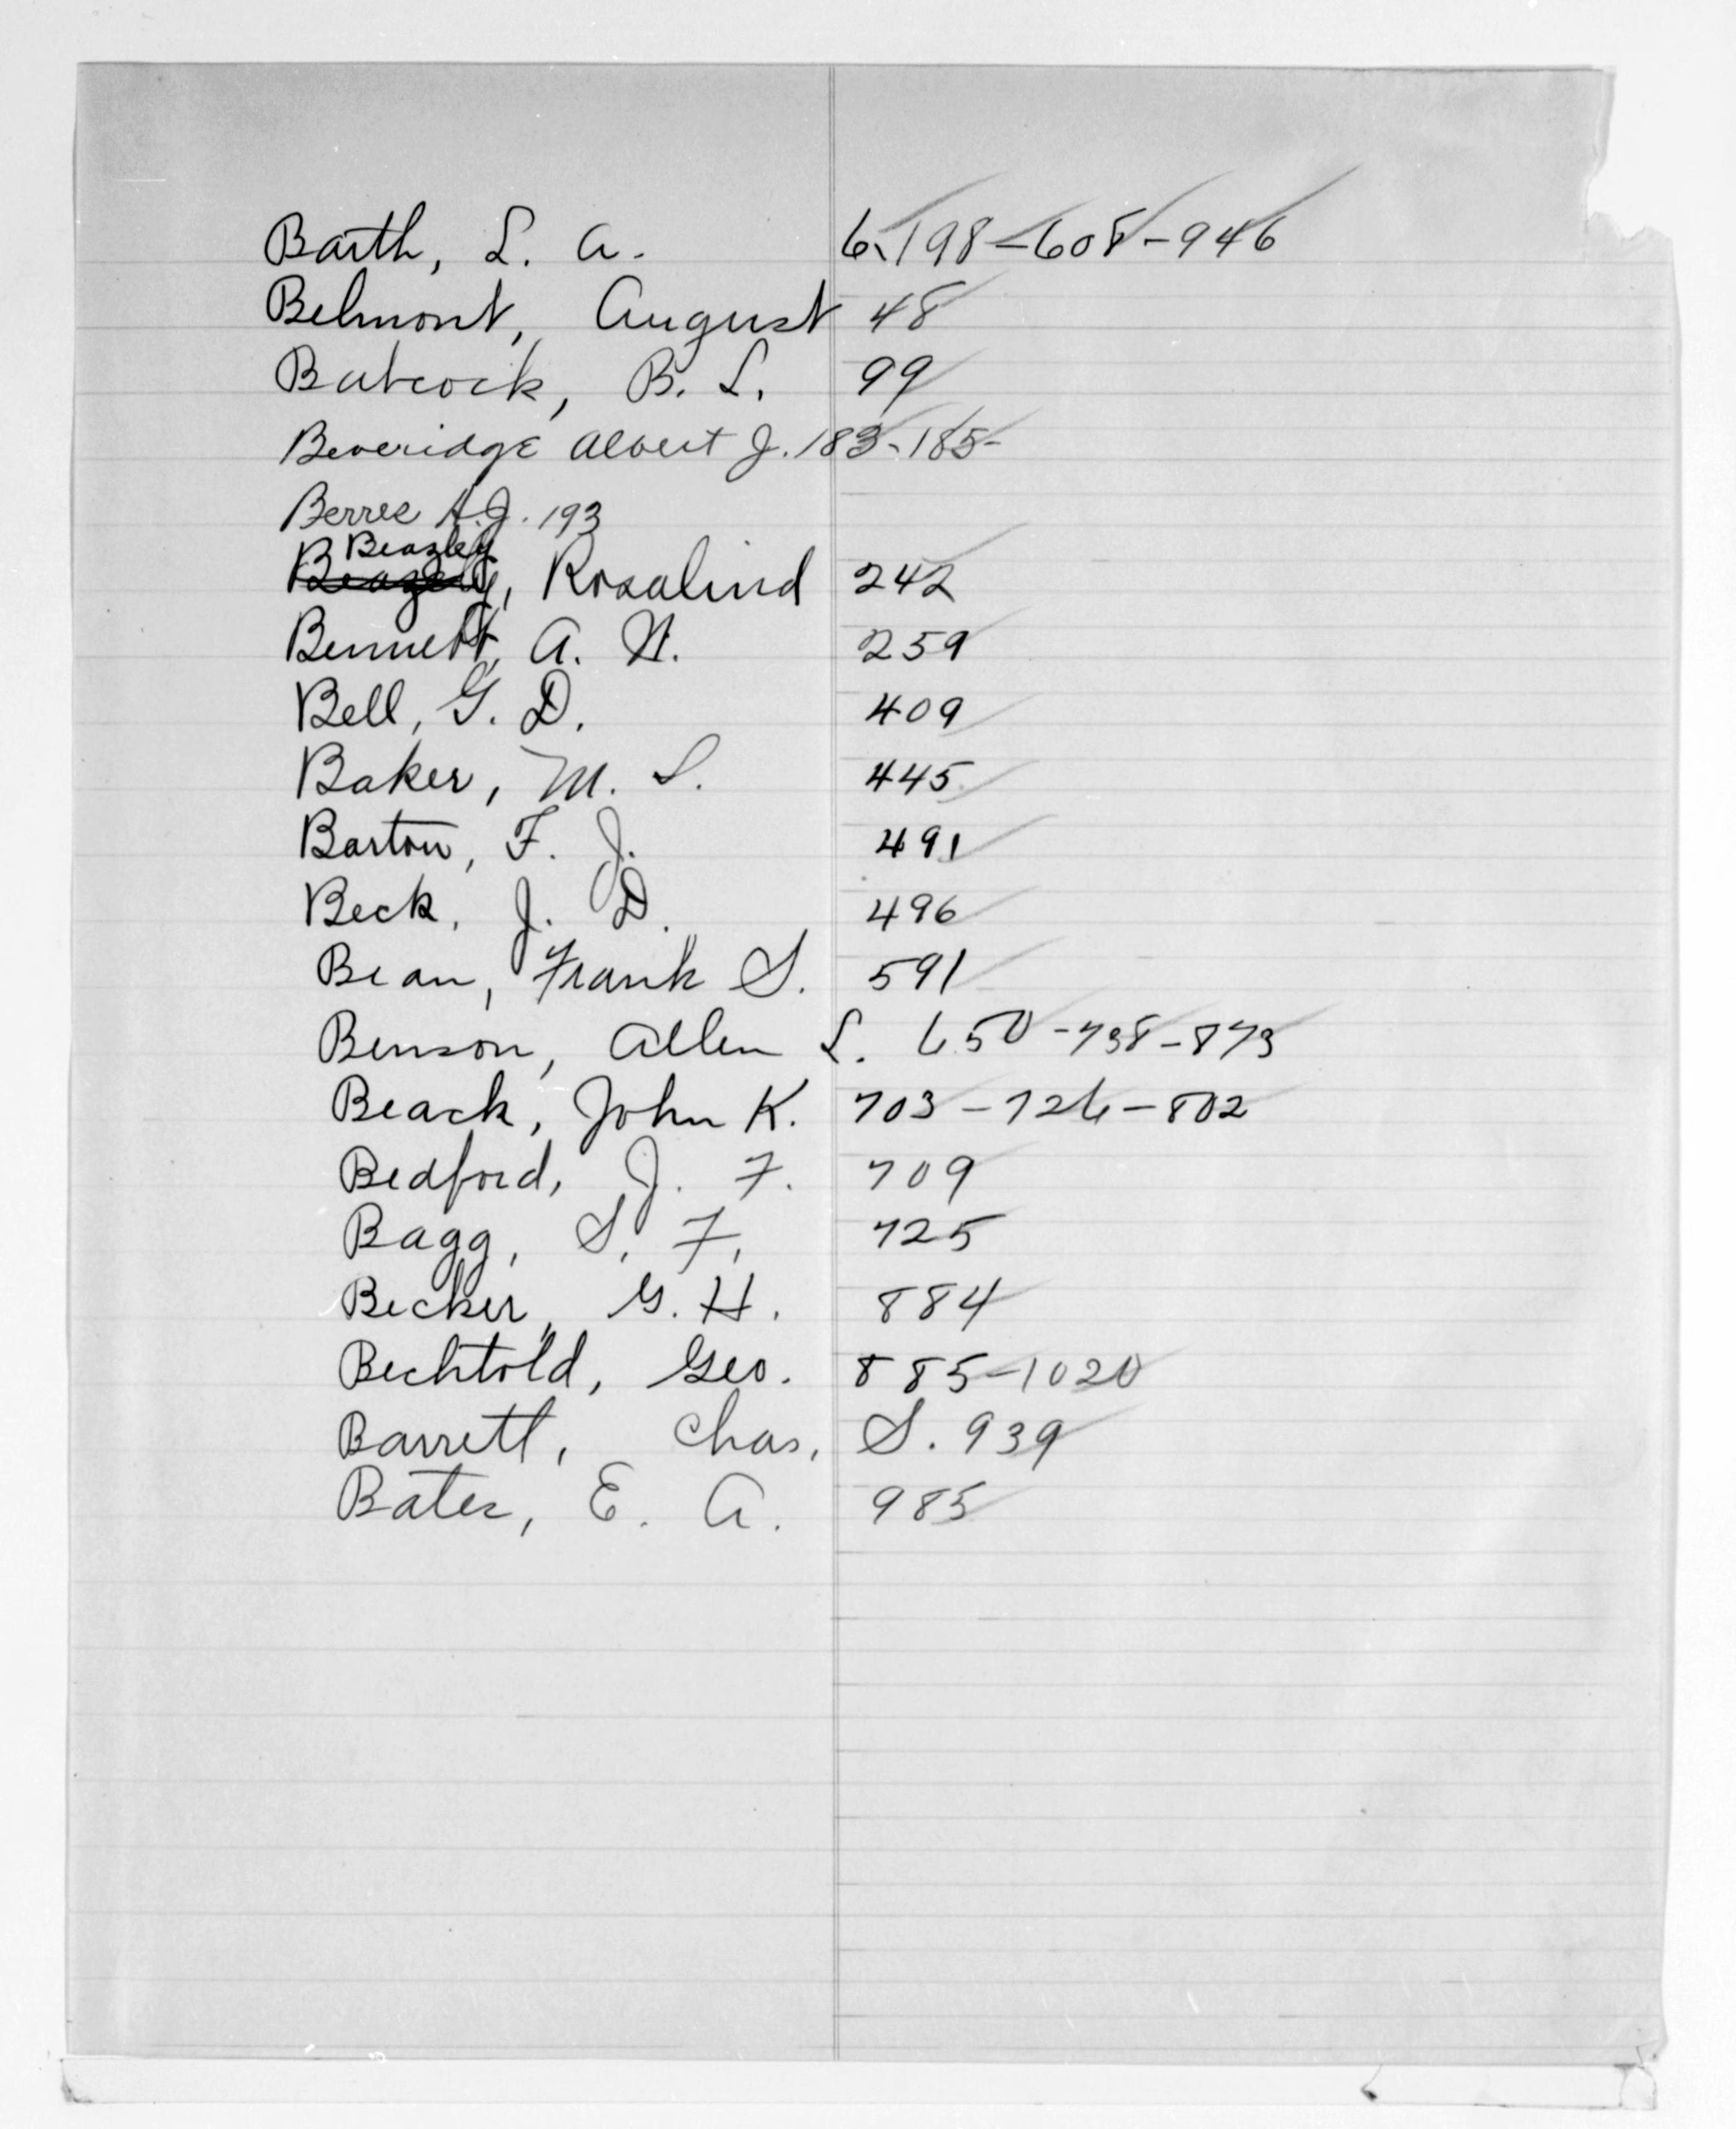 Barth, L. A. 6-198-608-946
Belmont, August 48
Babcock, B. L. 99
Beveridge Albert J. 183-185-
Berres A.J. 193
Beazley
Rosalind 242
Bennett, A. H. 259
Bell, G. D. 409
Baker, M. S. 445
Barton, F. J. 491
Beck, J. D. 496
Bean, Frank S. 591
Benson, Allen L. 650-738-873
Beack, John K. 703-726-802
Bedford, J. F. 709
Bagg, S. F. 725
Becker, G. H. 884
Bechtold, Geo. 885-1020
Barrett, Chas, S. 939
Bates, E. A. 985